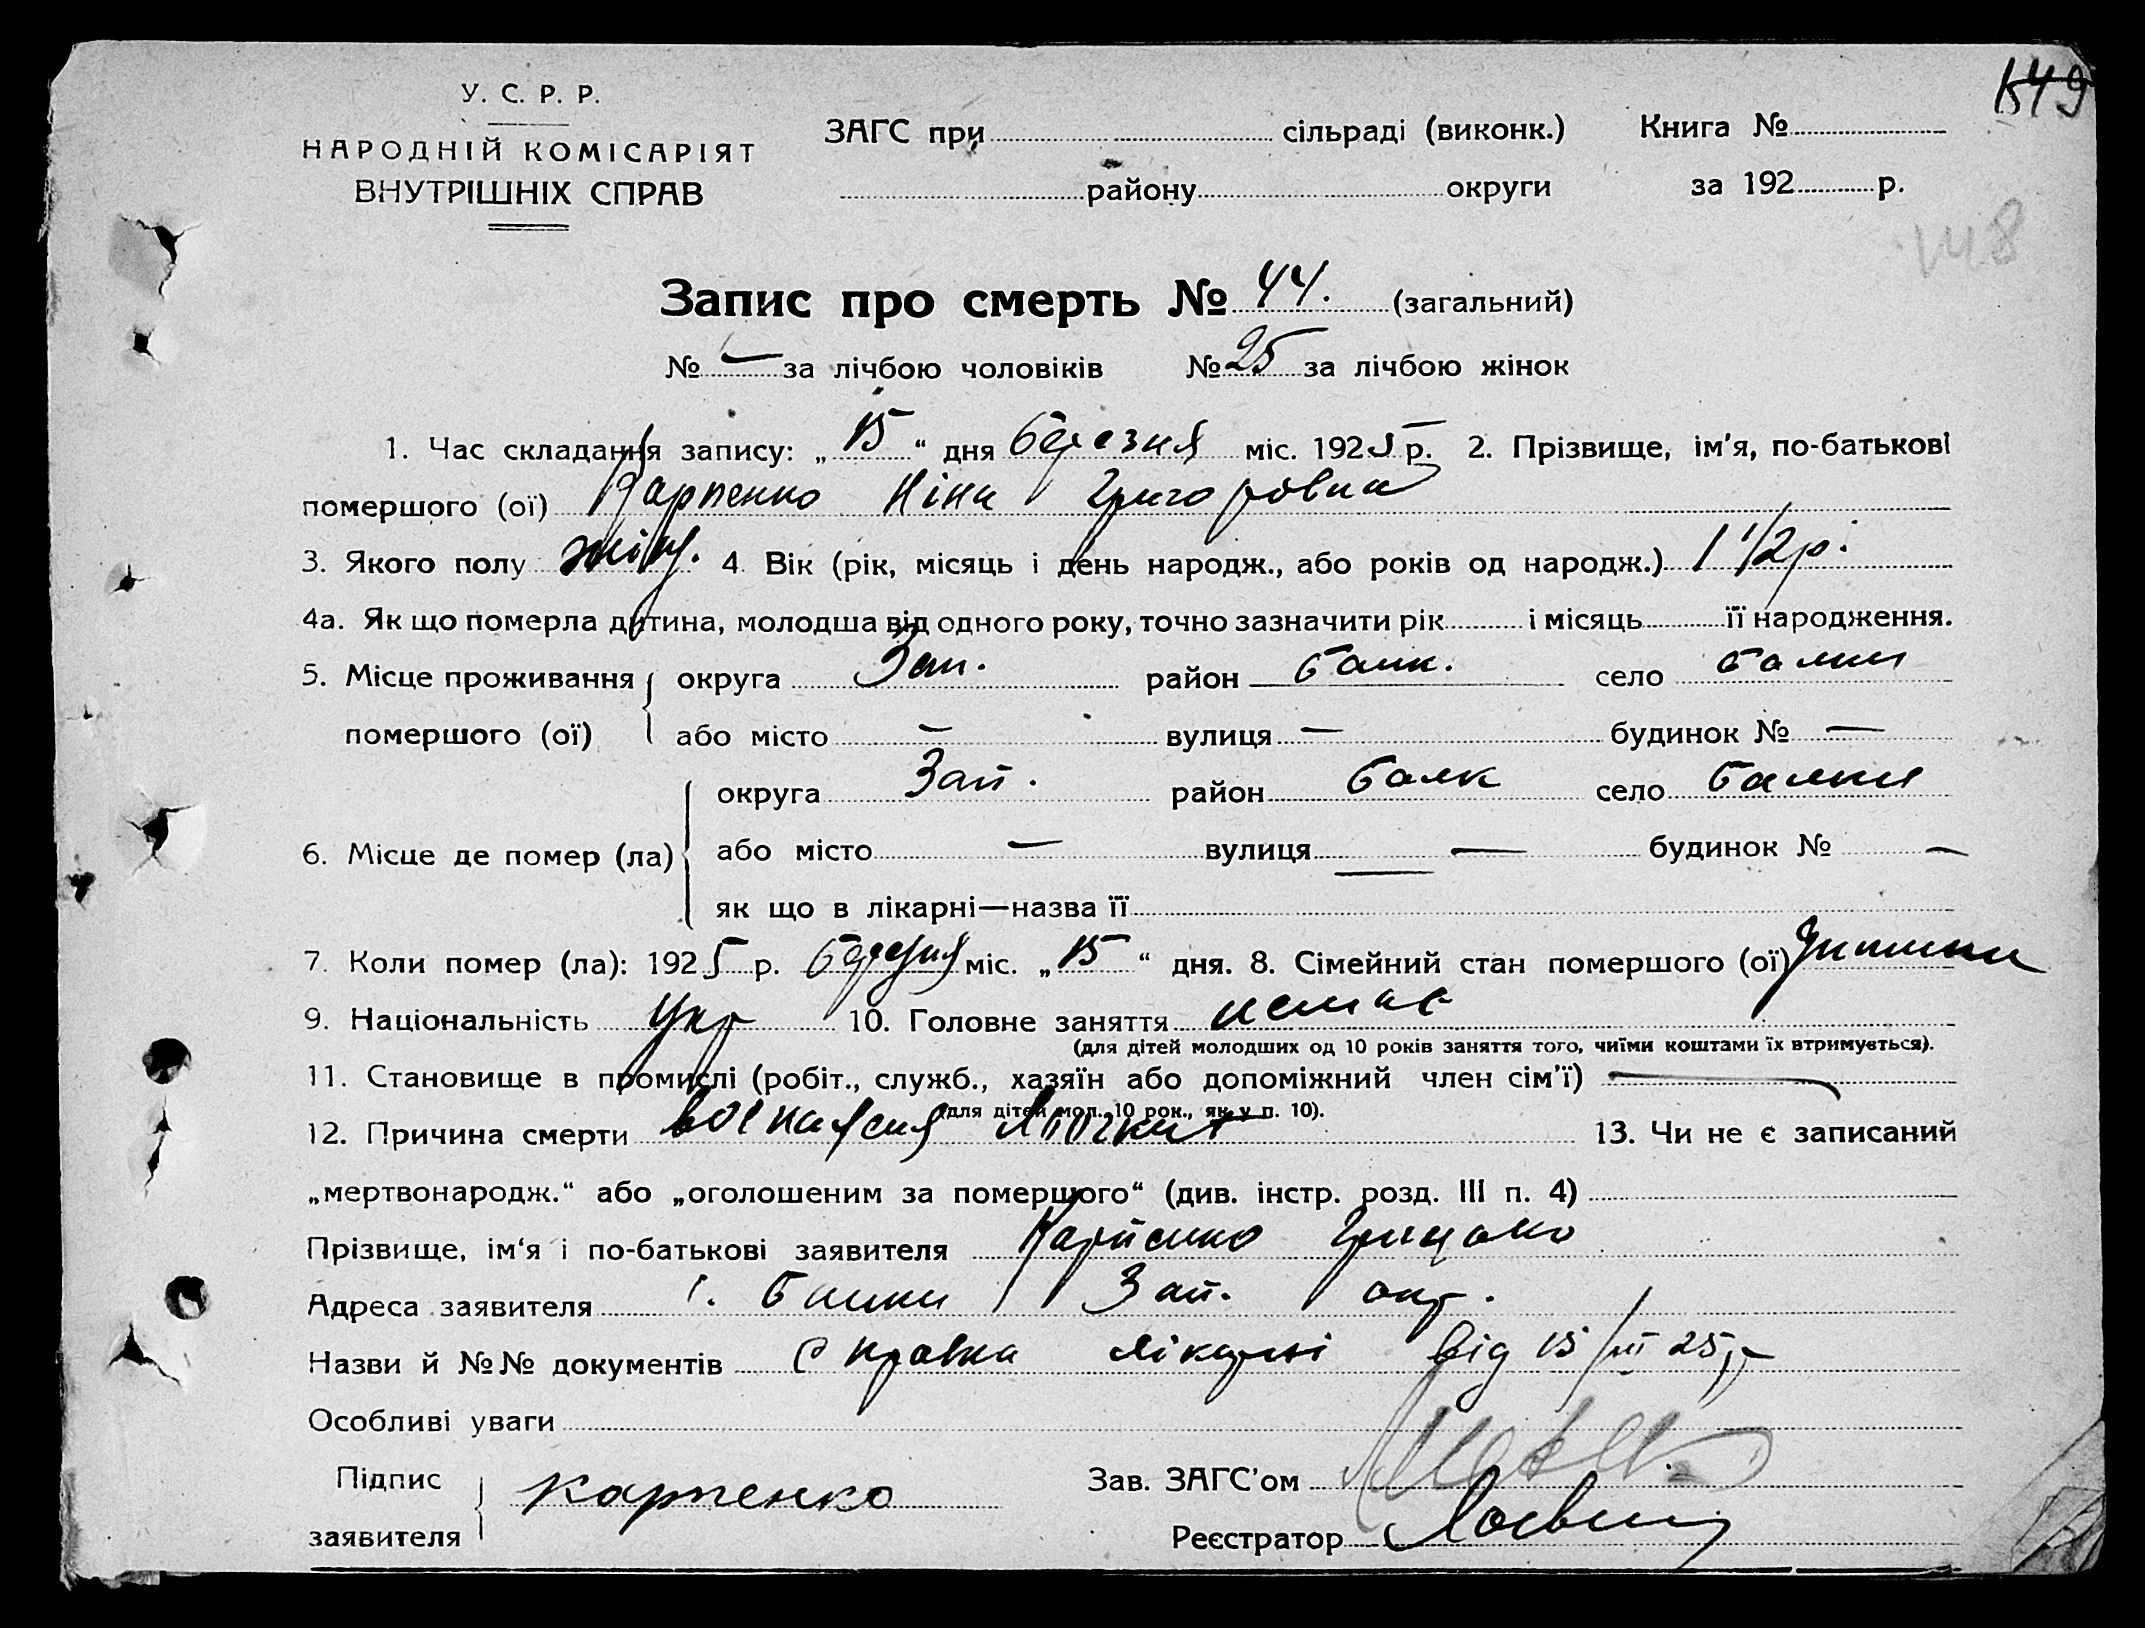 149
У. С. Р. Р.
НАРОДНІЙ КОМІСАРІЯТ
ВНУТРІШНІХ СПРАВ
ЗАГС при сільраді (виконк.) Книга №
району округи за 192 р.
148
Запис про смерть № 44. (загальний)
№ — за лічбою чоловіків № 25 за лічбою жінок
1. Час складання запису: „15“ дня березня міс. 1925 р. 2. Прізвище, ім'я, по-батькові
помершого (ої) Карпенко Ніна Григоровна
3. Якого полу жін. 4. Вік (рік, місяць і день народж., або років од народж.) 1 1/2 р.
4а. Як що померла дитина, молодша від одного року, точно зазначити рік і місяць її народження.
5. Місце проживання округа Зап. район Балк. село Балки
помершого (ої) або місто — вулиця — будинок № —
округа Зап. район Балк село Балки
6. Місце де помер (ла) або місто — вулиця — будинок № —
як що в лікарні—назва її
7. Коли помер (ла): 1925 р. березня міс. „15“ дня. 8. Сімейний стан помершого (ої)
9. Національність Укр 10. Головне заняття немає
(для дітей молодших од 10 років заняття того, чиїми коштами їх втримується).
11. Становище в промислі (робіт., служб., хазяїн або допоміжний член сім'ї) —
(для дітей мол. 10 рок., як у п. 10).
12. Причина смерти 13. Чи не є записаний
„мертвонародж.“ або „оголошеним за помершого“ (див. інстр. розд. III п. 4)
Прізвище, ім'я і по-батькові заявителя Карпенко Грицько
Адреса заявителя с. Балки Зап. окр.
Назви й №№ документів Справка лікарні від 15/III 25 р
Особливі уваги
Підпис заявителя Карпенко Зав. ЗАГС'ом
Реєстратор